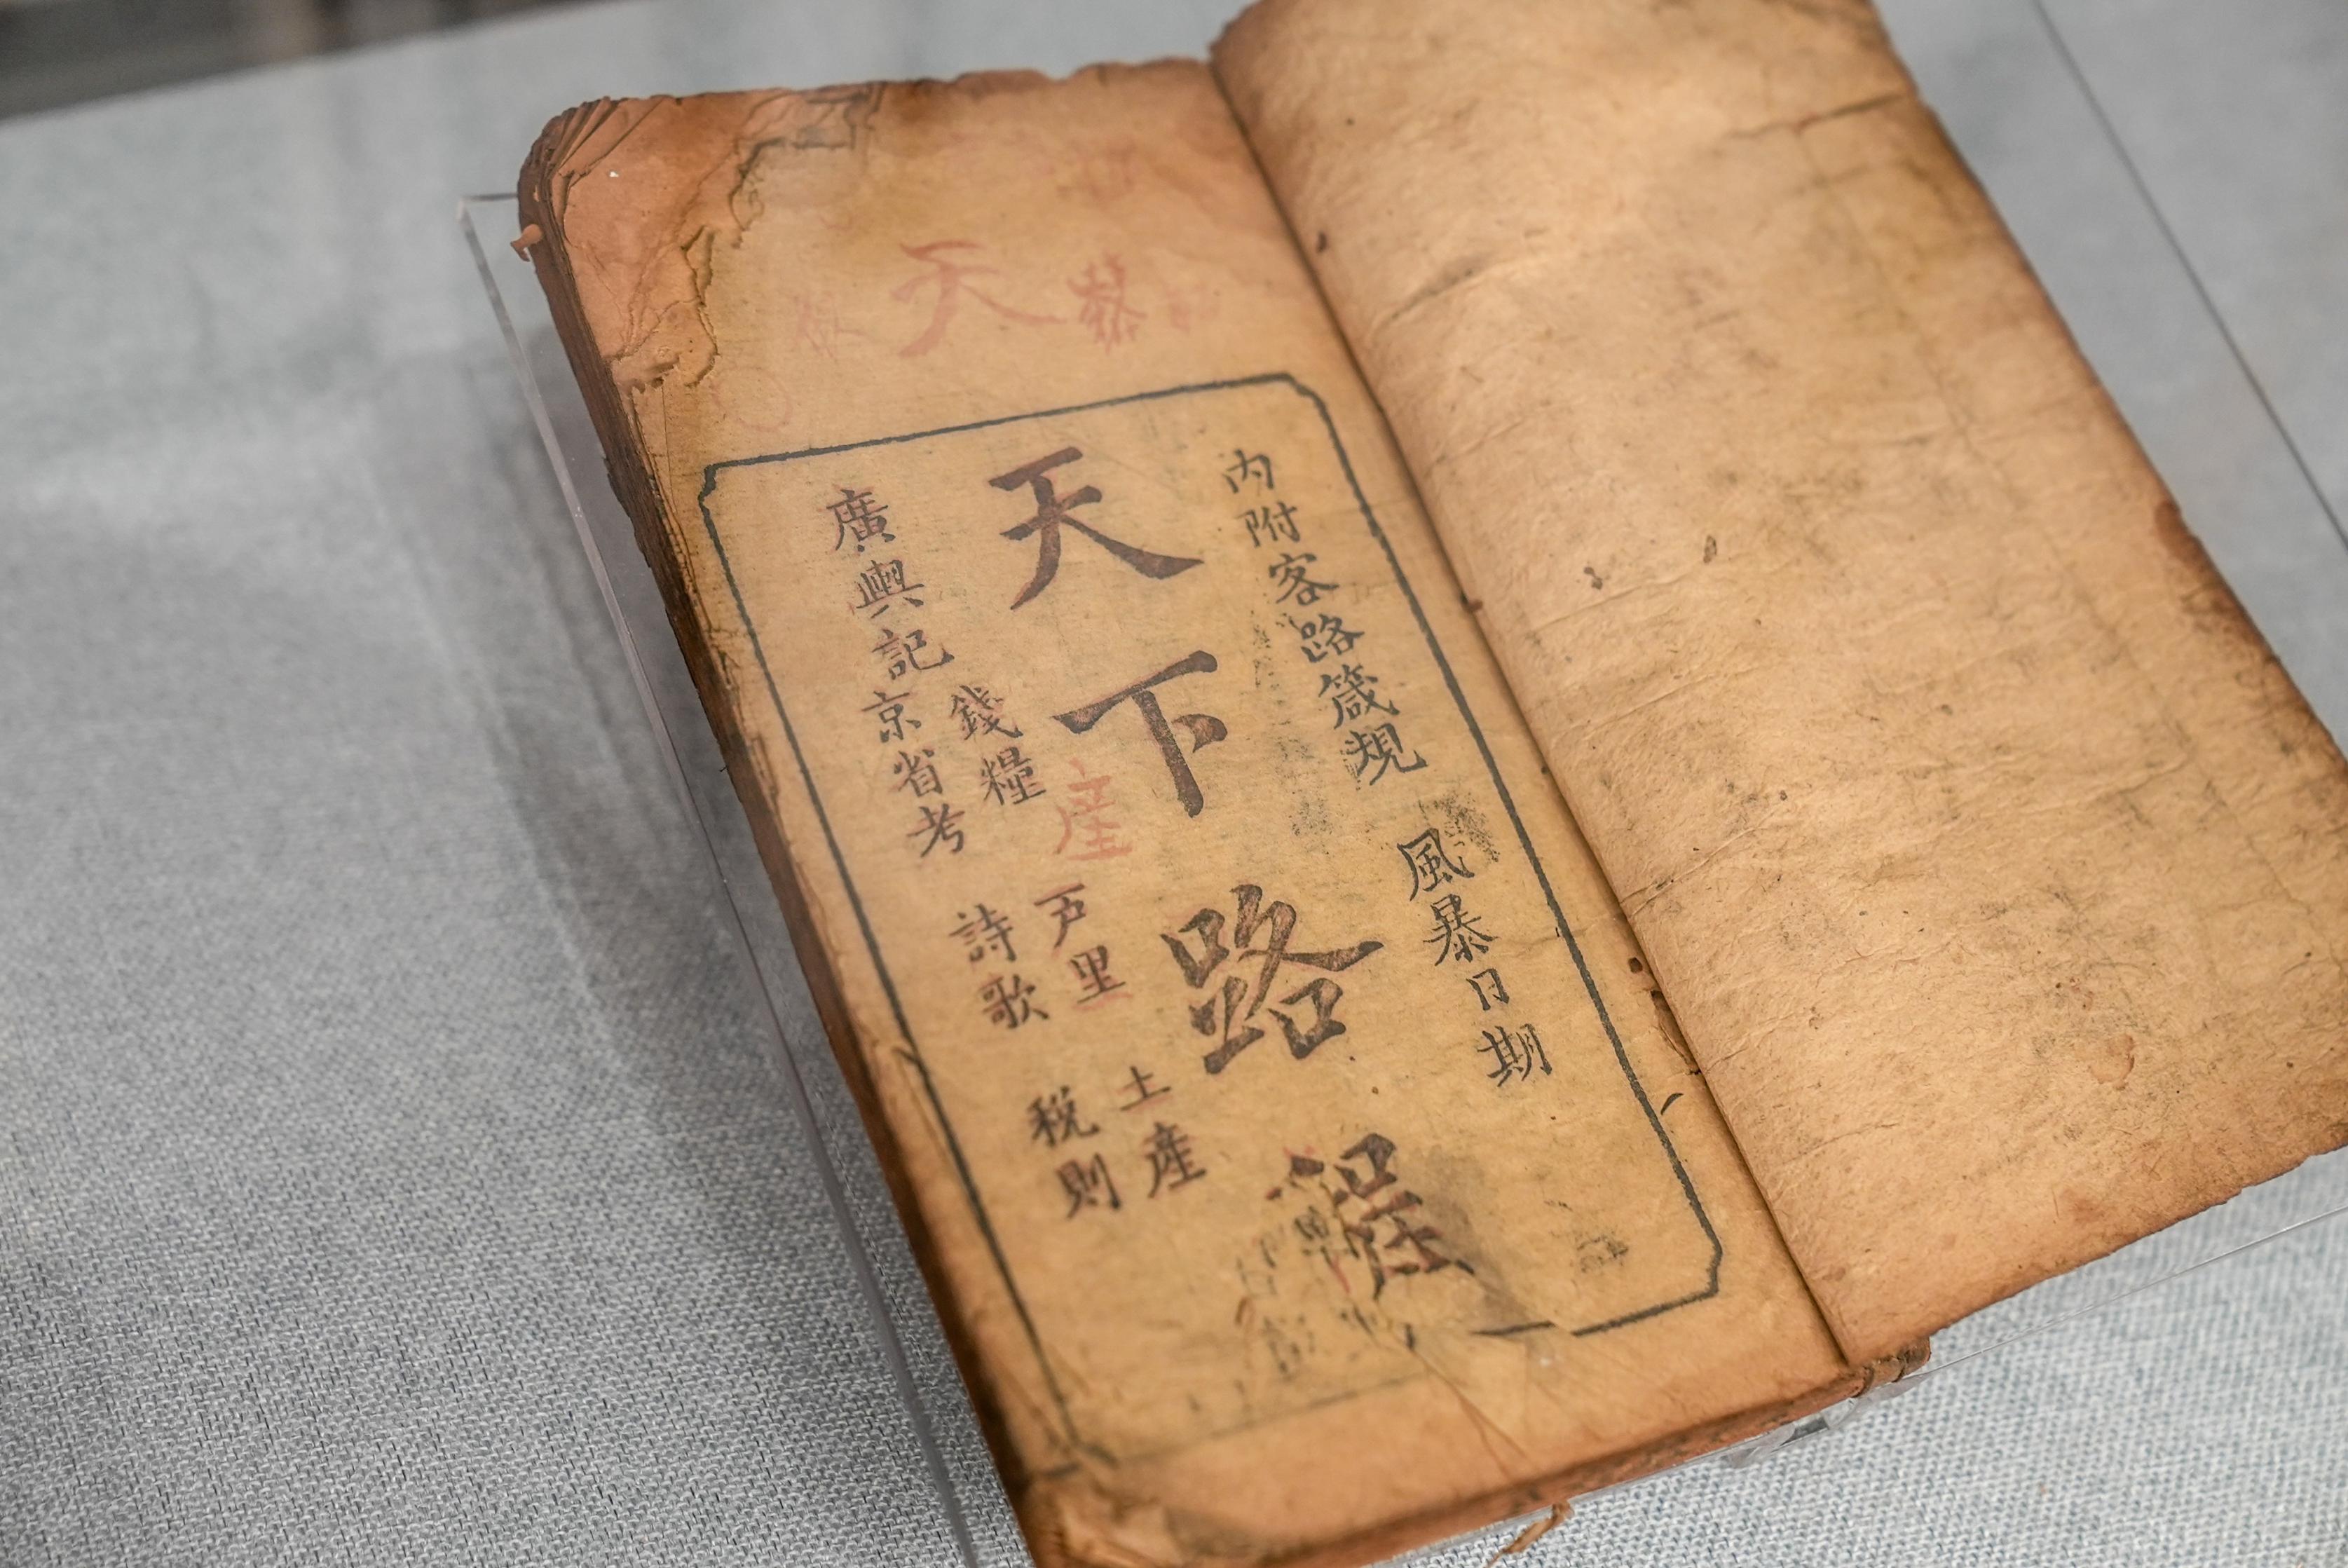 内附客路箴規 風暴日期
天下路程
錢糧 戸里 土產
廣輿記京省考 詩歌 稅則
天
産